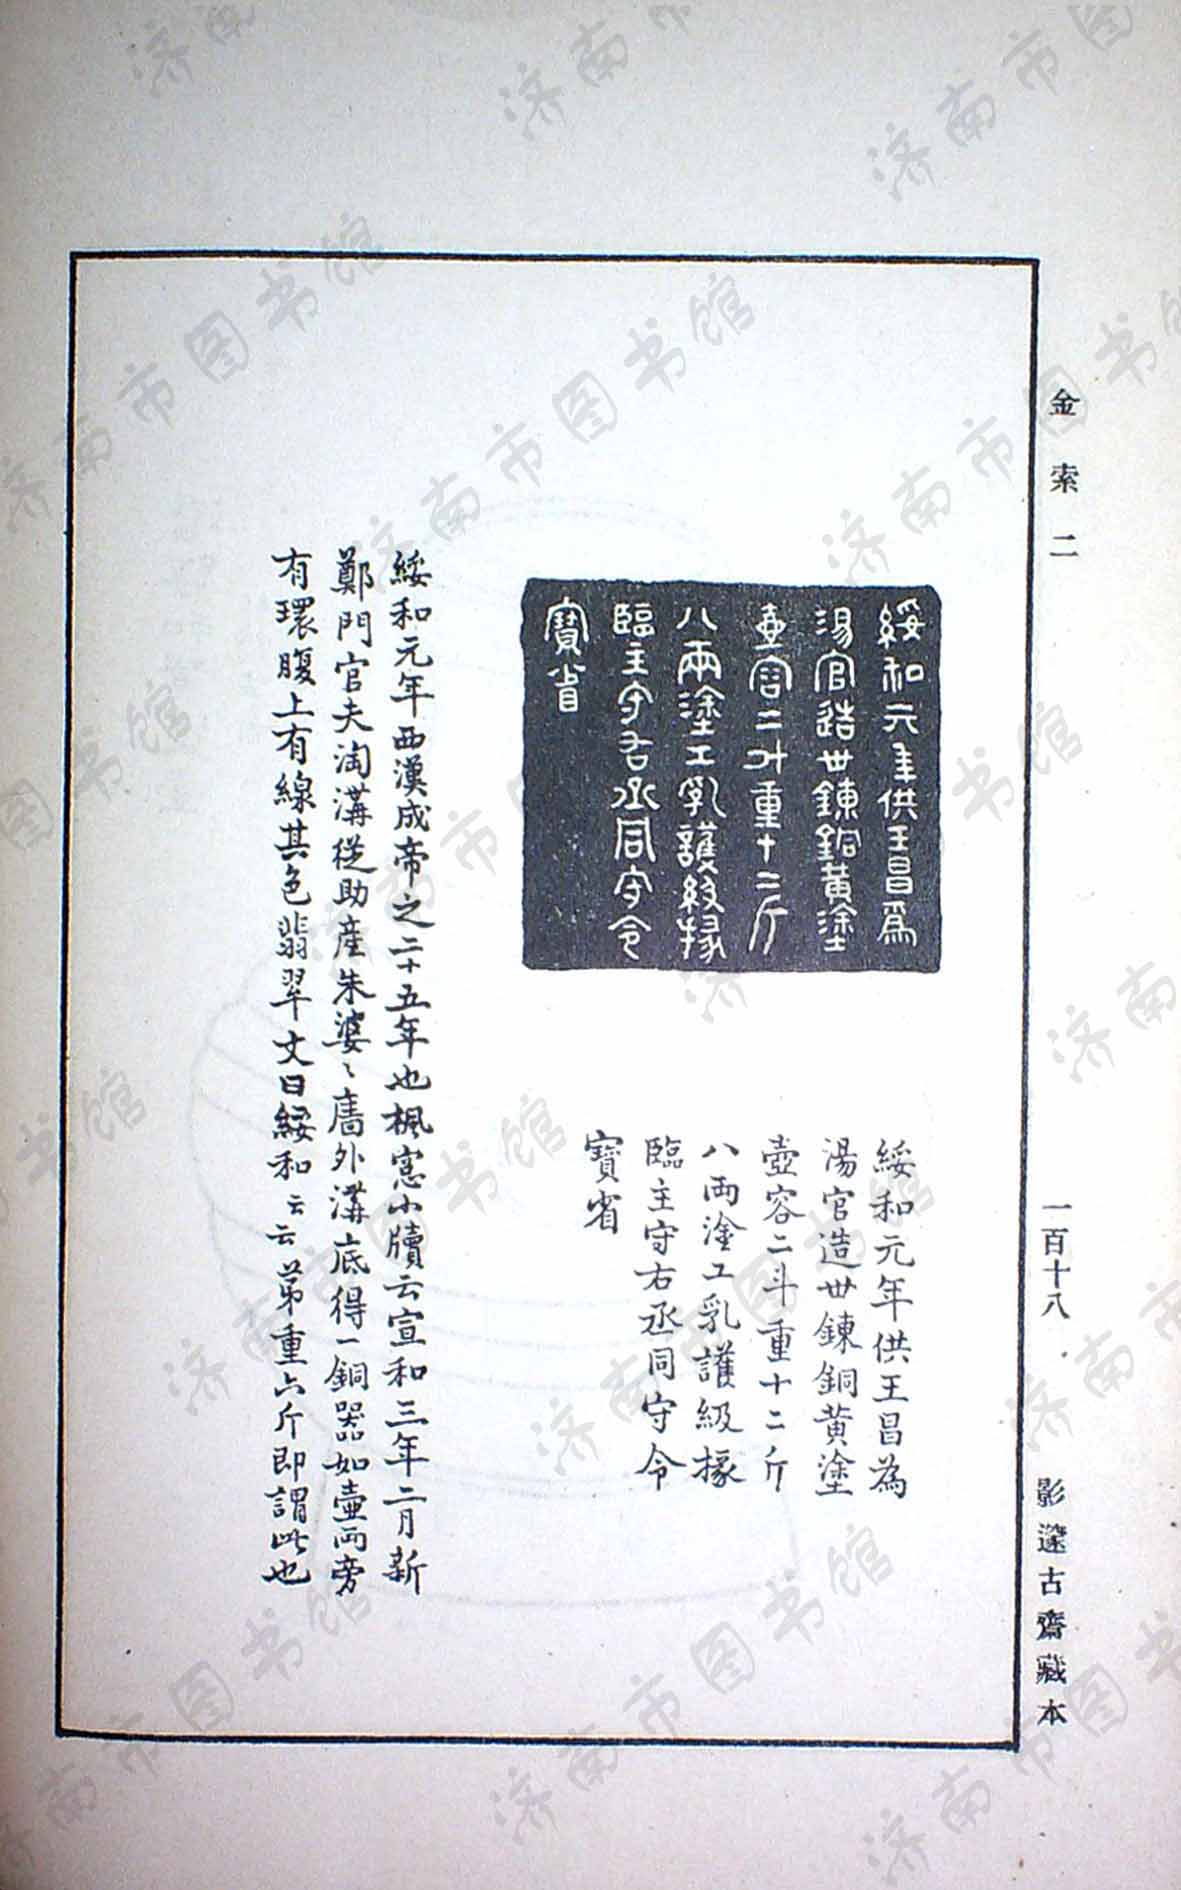 金索二
一百十八
影邃古齋藏本
綏和元年供王昌爲
湯官造卅鍊銅黃塗
壺容二升重十二斤
八兩塗工乳護級掾
臨主守右丞同守令
寶省
綏和元年供王昌為
湯官造卅鍊銅黃塗
壺容二斗重十二斤
八兩塗工乳護級掾
臨主守右丞同守令
寶省
綏和元年西漢成帝之二十五年也楓窓小牘云宣和三年二月新
鄭門官夫淘溝從助產朱婆〻廧外溝底得一銅器如壺兩旁
有環腹上有線其色翡翠文曰綏和云云第重六斤即謂此也
济南市图书馆